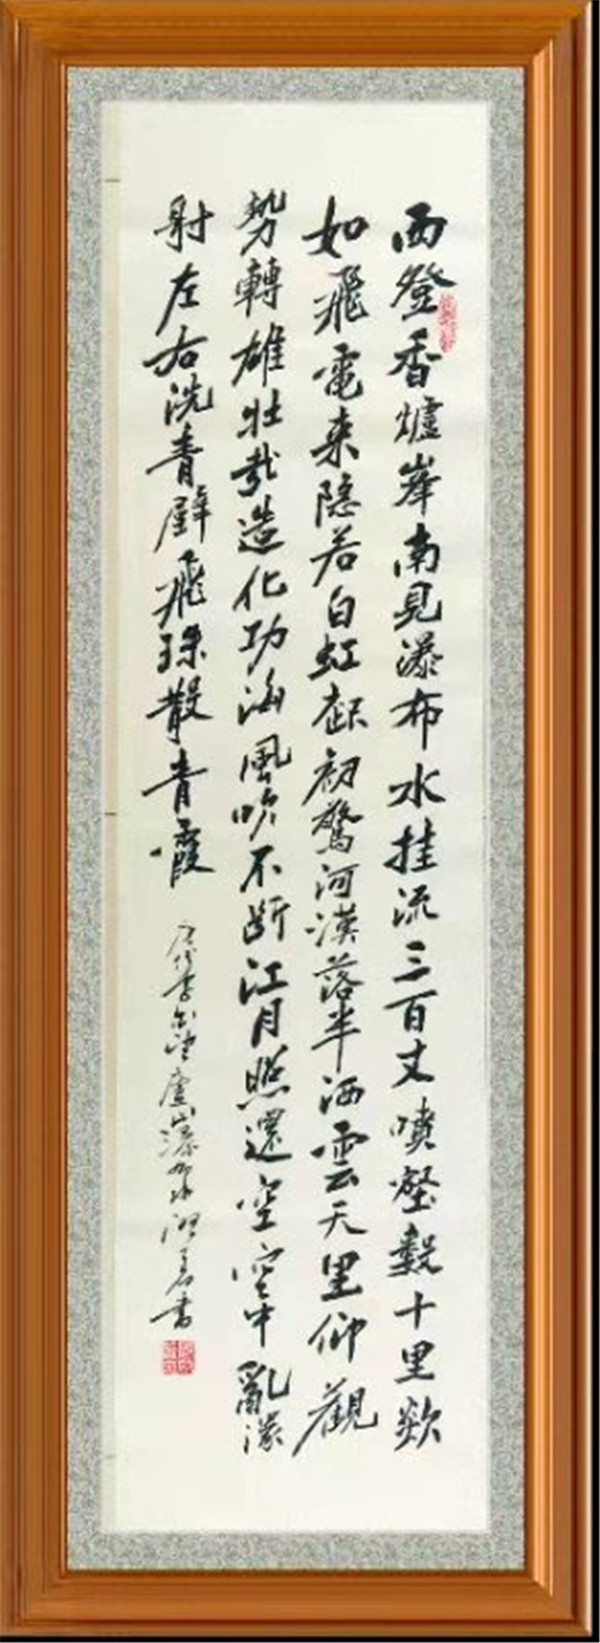 西登香爐峰南見瀑布水挂流三百丈噴壑數十里欻
如飛電来隐若白虹起初驚河漢落半洒雲天里仰觀
勢轉雄壮哉造化功海風吹不断江月照還空空中亂潈
射左右洗青壁飛珠散青霞
唐代李白望庐山瀑布水
书